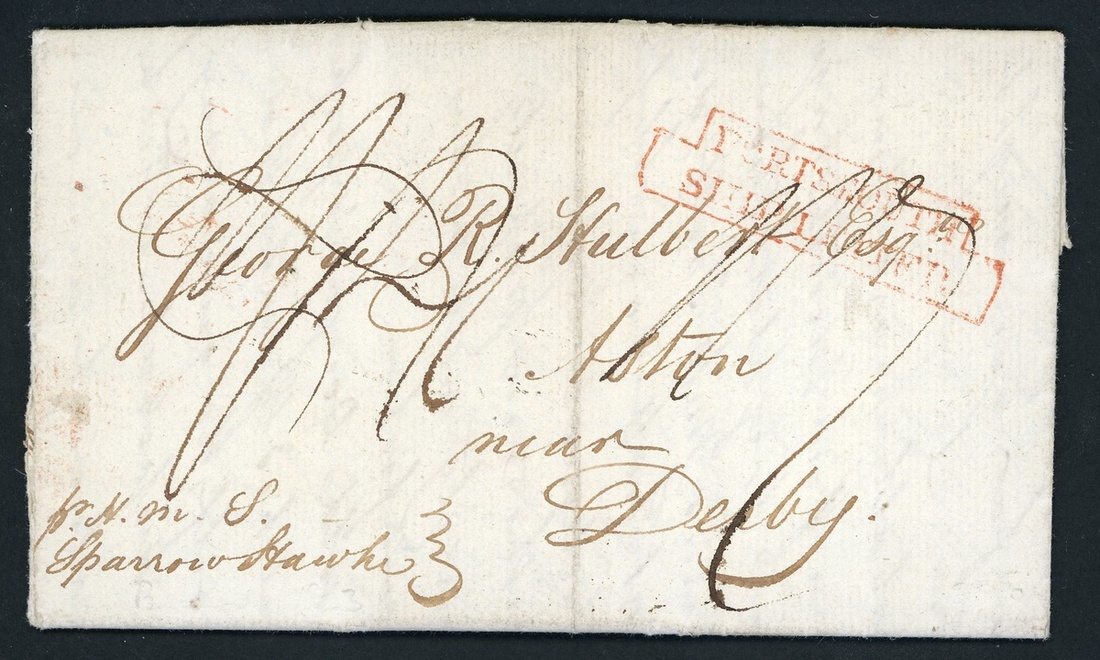 PORTSMOUTH
SHIP LETTER
George R. Hulbert Esq.
Aston
near
Derby.
pr. H. M. S.
Sparrow Hawke